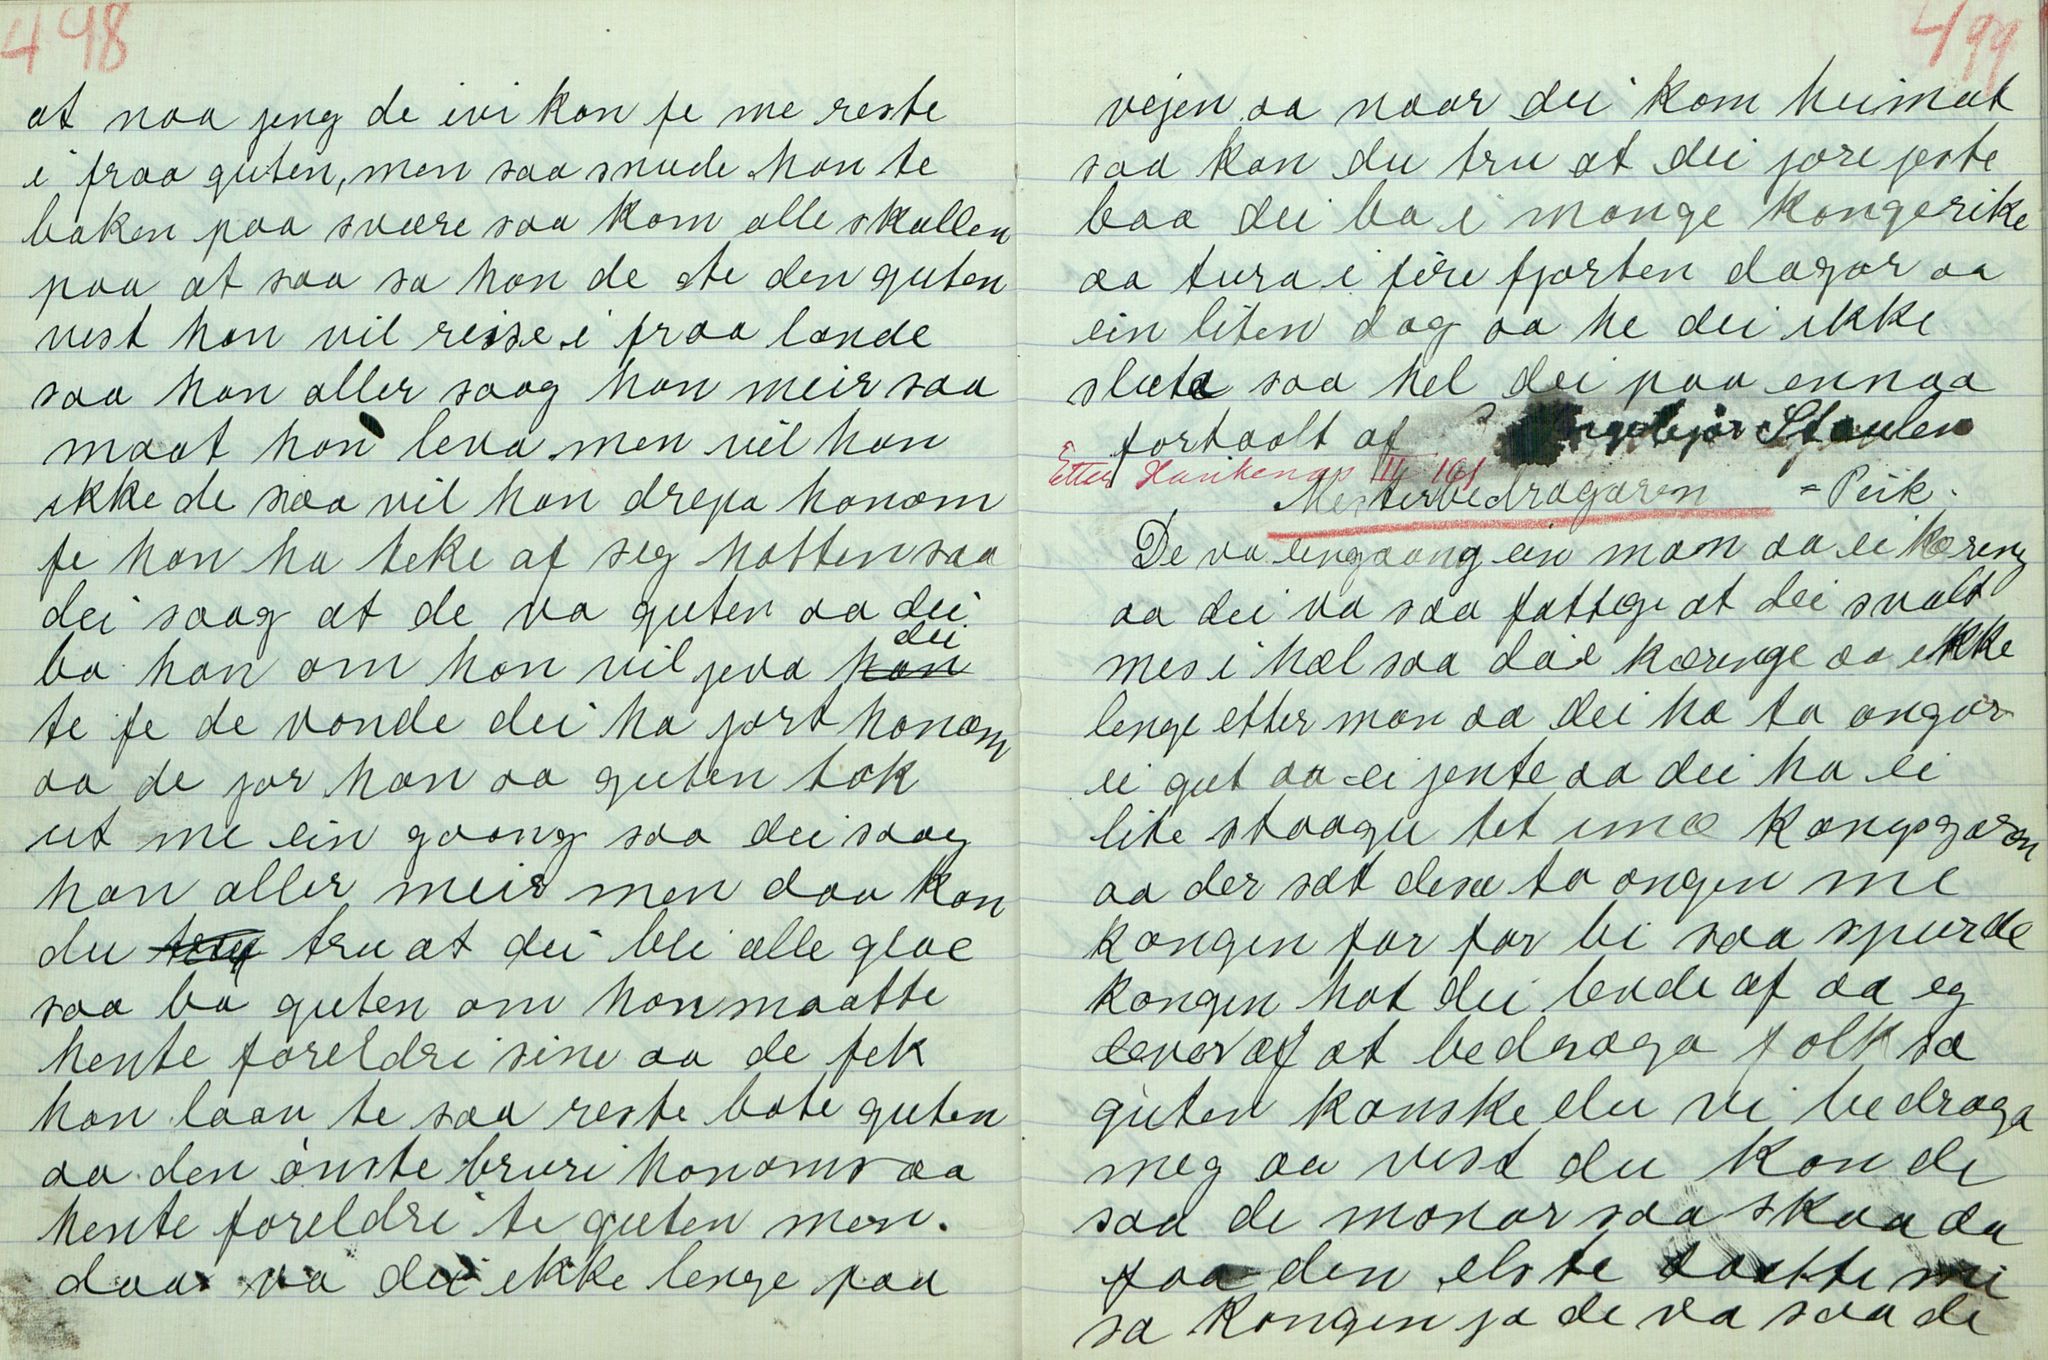 498
at naa jeng de ivi kan fe me reste
i fraa guten, men saa snude han te
baken paa svære saa kom alle skallen
paa at saa sa han de te den guten
vest han vil reise i fraa lande
saa han aller saag han meir saa
maat han leva men vil han
ikke de saa vil han drepa honom
fe han ha teke af seg hatten saa
dei saag at de va guten aa dei
dei
ba han om han vil jeva han
te fe de vonde dei ha jort honom
aa de jor han aa guten tok
ut me ein goong saa dei saag
han aller meir men daa kan
du tru at dei blei alle glae
saa ba guten om han maatte
hente foreldri sine aa de fek
han laav te saa reste bate guten
aa den ònste bruri honoms aa
hente foreldri te guten men.
daa va dei ikke lenge paa
499
vejen aa naar dei kom heimat
saa kan du tru at dei jore jeste
baa dei ba i mange kongerike
aa tura i fire fjorten dagar aa
ein liten dag aa he dei ikke
sluta saa hel dei paa ennaa
fortaalt af Ingebjør Staulen
Etter Hankenæs II 161
Mesterbedragaren = Peik.
De va eingaang ein man aa ei kæreng
aa dei va saa fattige at dei svalt
mes i hæl saa döe kærenge aa ikke
lenge etter man aa dei ha to ongar
ei gut aa ei jente aa dei ha ei
lite staagu tet imæ kongsgaren
aa der sat dese to ongen me
kongen for for bi saa spurde
kongen hot dei levde af aa eg
lever af at bedraga folk sa
guten kanske du vi bedraga
meg aa vest du kan de
saa de monar saa skaa du
faa den elste daatte mi
sa kongen ja de va saa de